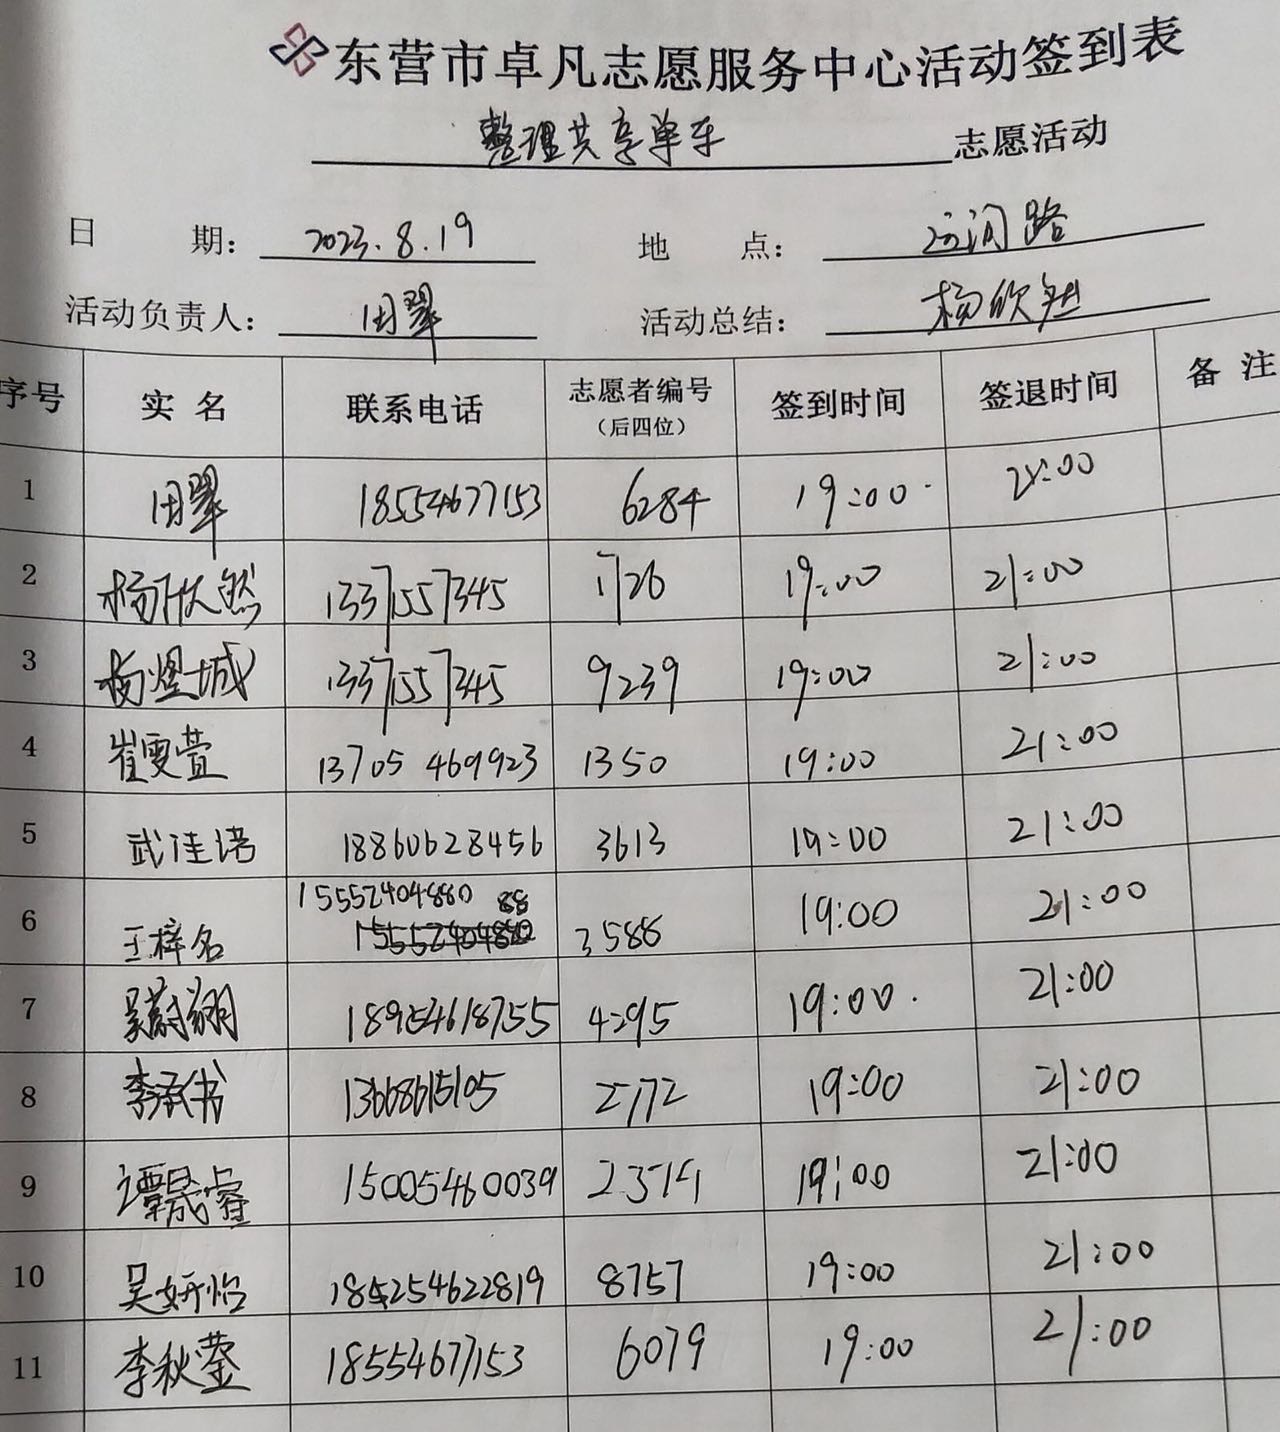 东营市卓凡志愿服务中心活动签到表
整理共享单车 志愿活动
日 期: 2023.8.19 地 点: 运河路
活动负责人: 田翠 活动总结: 杨欣然
序号 实名 联系电话 志愿者编号（后四位） 签到时间 签退时间 备注
1 田翠 18554677153 6284 19:00 21:00
2 杨欣然 13371557345 1726 19:00 21:00
3 杨煜城 13371557345 9239 19:00 21:00
4 崔雯萱 13705469923 1350 19:00 21:00
5 武佳诺 18860628456 3613 19:00 21:00
6 王梓名 15552404880 88 3588 19:00 21:00
7 吴蔚翔 18954618755 4295 19:00 21:00
8 李承书 13668615105 2772 19:00 21:00
9 谭晟睿 15005460039 2374 19:00 21:00
10 吴妍怡 18254622819 8757 19:00 21:00
11 李秋蓥 18554677153 6079 19:00 21:00